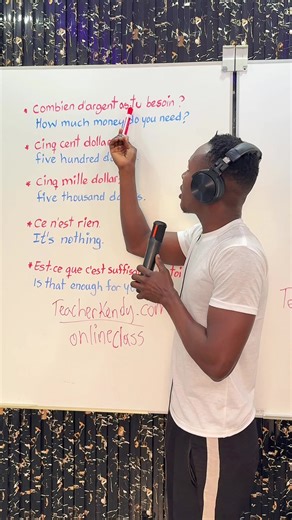 Combien d'argent as tu besoin ?
How much money do you need?
Cinq cent dollar
five hundred d
Cinq mille dollar
five thousand do s.
Ce n'est rien
It's nothing.
Est-ce que c'est suffis toi
Is that enough for yo
TeacherKendy.com
online class
Te